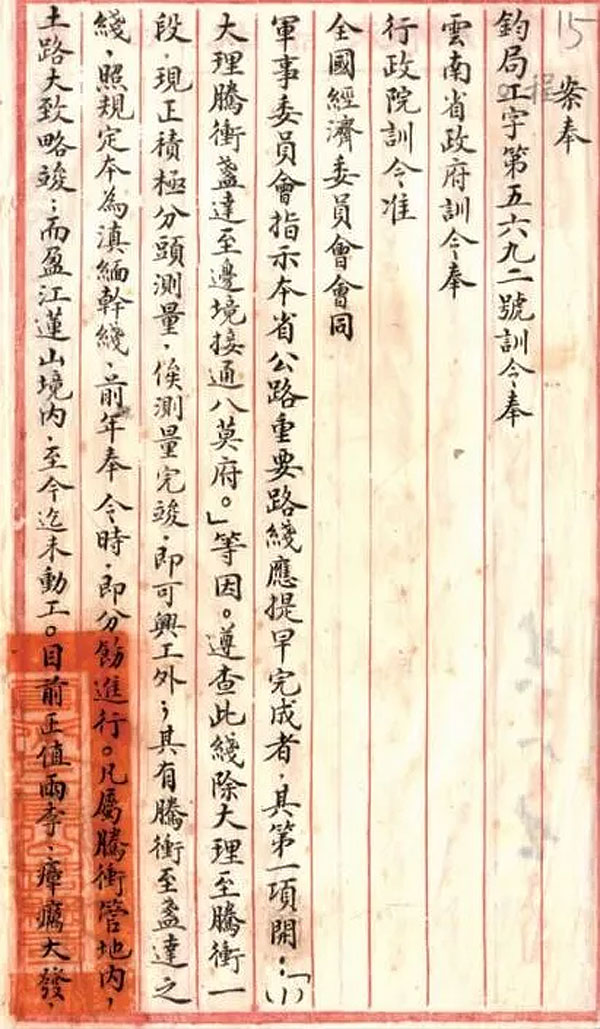 15
案奉
鈞局工程字第五六九二號訓令奉
雲南省政府訓令奉
行政院訓令准
全國經濟委員會會同
軍事委員會指示本省公路重要路綫應提早完成者，其第一項開：「(1)
大理騰衝盞達至邊境接通八莫府。」等因。遵查此綫除大理至騰衝一
段，現正積極分頭測量，俟測量完竣，即可興工外；其有騰衝至盞達之
綫，照規定本為滇緬幹綫，前年奉令時，即分飭進行。凡屬騰衝管地內，
土路大致略竣；而盈江蓮山境內，至今迄未動工。目前正值雨季，瘴癘大發，